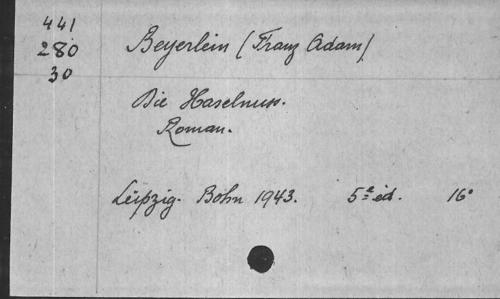 441
280
30
Beyerlein (Franz Adam)
Die Haselnuss.
Roman.
Leipzig. Bohn 1943. 5e éd. 16°